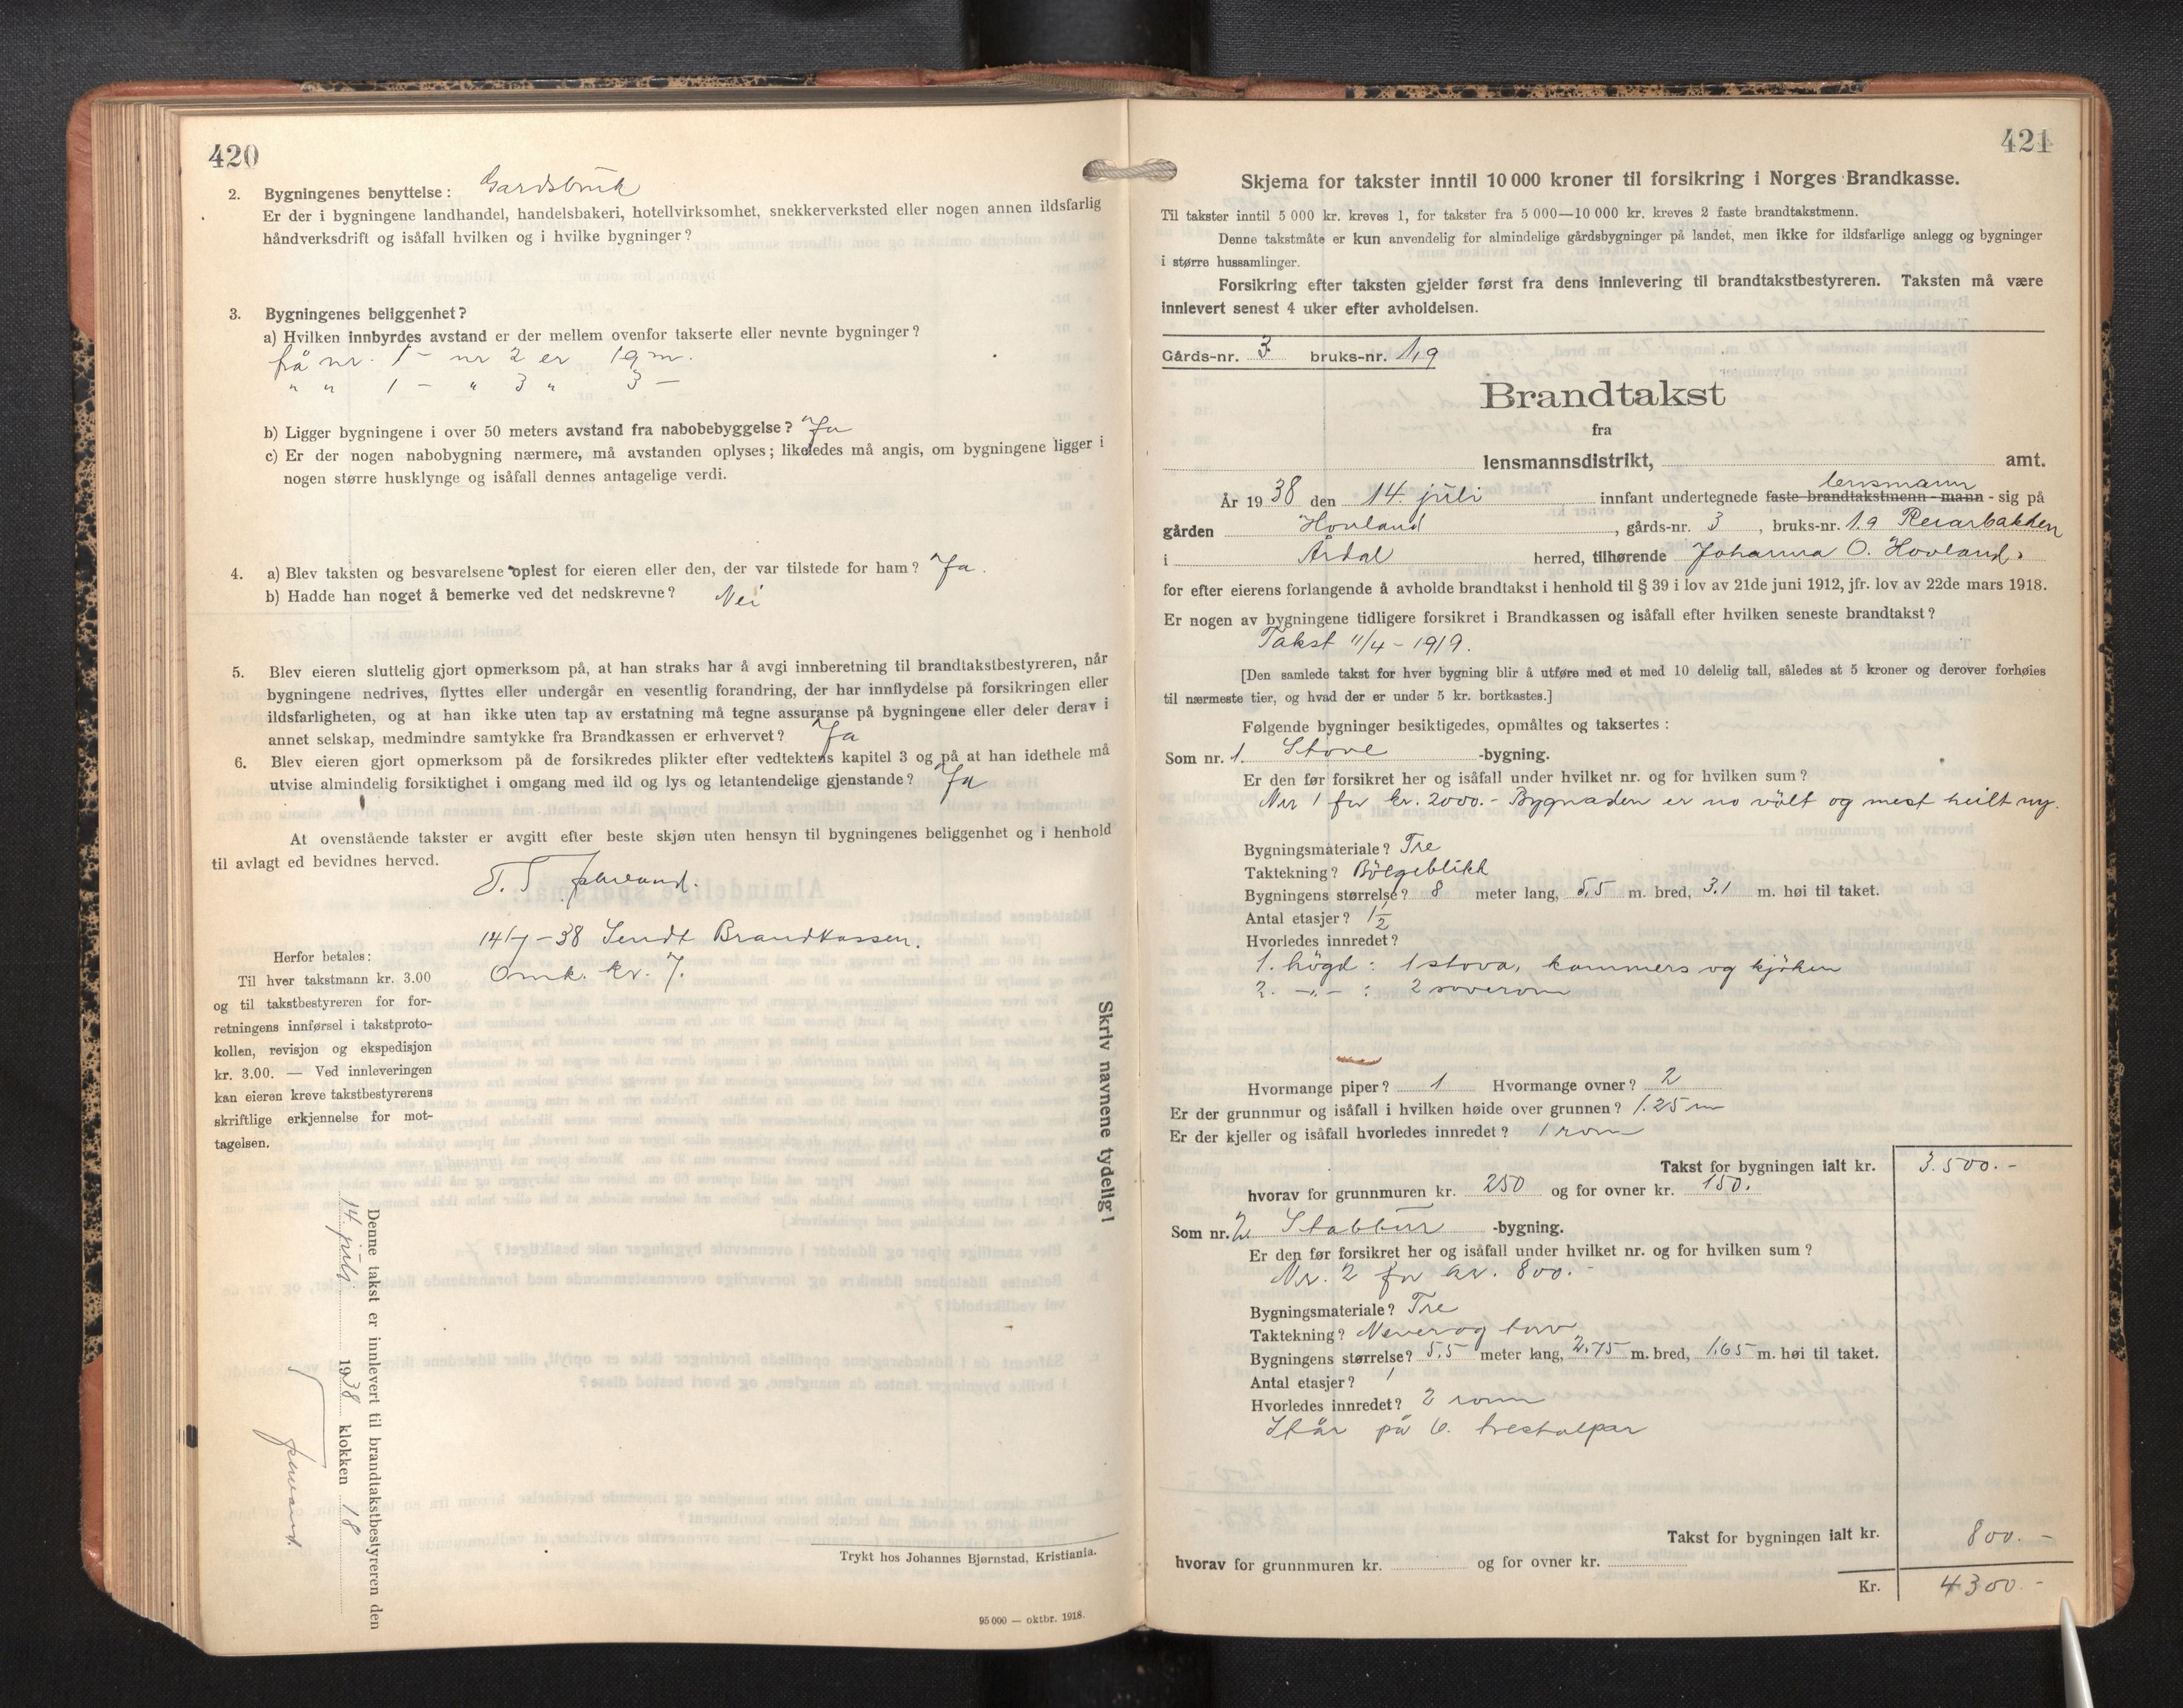 420
2. Bygningenes benyttelse: Gardsbruk
Er der i bygningene landhandel, handelsbakeri, hotellvirksomhet, snekkerverksted eller nogen annen ildsfarlig
håndverksdrift og isåfall hvilken og i hvilke bygninger?
3. Bygningenes beliggenhet?
a) Hvilken innbyrdes avstand er der mellem ovenfor takserte eller nevnte bygninger?
frå nr. 1 - nr 2 er 19 m.
" " 1 - " 3 " 3 -
b) Ligger bygningene i over 50 meters avstand fra nabobebyggelse? Ja
c) Er der nogen nabobygning nærmere, må avstanden oplyses; likeledes må angis, om bygningene ligger i
nogen større husklynge og isåfall dennes antagelige verdi.
4. a) Blev taksten og besvarelsene oplest for eieren eller den, der var tilstede for ham? Ja.
b) Hadde han noget å bemerke ved det nedskrevne? Nei
5. Blev eieren sluttelig gjort opmerksom på, at han straks har å avgi innberetning til brandtakstbestyreren, når
bygningene nedrives, flyttes eller undergår en vesentlig forandring, der har innflydelse på forsikringen eller
ildsfarligheten, og at han ikke uten tap av erstatning må tegne assuranse på bygningene eller deler derav i
annet selskap, medmindre samtykke fra Brandkassen er erhvervet? Ja
6. Blev eieren gjort opmerksom på de forsikredes plikter efter vedtektens kapitel 3 og på at han idethele må
utvise almindelig forsiktighet i omgang med ild og lys og letantendelige gjenstande? Ja
At ovenstående takster er avgitt efter beste skjøn uten hensyn til bygningenes beliggenhet og i henhold
til avlagt ed bevidnes herved.
14/7-38 Sendt Brandkassen.
Omk. kr. 7.
Herfor betales:
Til hver takstmann kr. 3.00
og til takstbestyreren for for-
retningens innførsel i takstproto-
kollen, revisjon og ekspedisjon
kr. 3.00. — Ved innleveringen
kan eieren kreve takstbestyrerens
skriftlige erkjennelse for mot-
tagelsen.
Skriv navnene tydelig!
Denne takst er innlevert til brandtakstbestyreren den
14. juli 1938 klokken 18
Trykt hos Johannes Bjørnstad, Kristiania.
95 000 — oktbr. 1918.
421
Skjema for takster inntil 10 000 kroner til forsikring i Norges Brandkasse.
Til takster inntil 5 000 kr. kreves 1, for takster fra 5 000—10 000 kr. kreves 2 faste brandtakstmenn.
Denne takstmåte er kun anvendelig for almindelige gårdsbygninger på landet, men ikke for ildsfarlige anlegg og bygninger
i større hussamlinger.
Forsikring efter taksten gjelder først fra dens innlevering til brandtakstbestyreren. Taksten må være
innlevert senest 4 uker efter avholdelsen.
Gårds-nr. 3 bruks-nr. 1,9
Brandtakst
fra
lensmannsdistrikt, amt.
lensmann
År 1938 den 14. juli innfant undertegnede faste brandtakstmenn - mann - sig på
gården Hovland, gårds-nr. 3, bruks-nr. 1.9 Reiarbakken
i Årdal herred, tilhørende Johanna O. Hovland.
for efter eierens forlangende å avholde brandtakst i henhold til § 39 i lov av 21de juni 1912, jfr. lov av 22de mars 1918.
Er nogen av bygningene tidligere forsikret i Brandkassen og isåfall efter hvilken seneste brandtakst?
Takst 11/4 - 1919.
[Den samlede takst for hver bygning blir å utføre med et med 10 delelig tall, således at 5 kroner og derover forhøies
til nærmeste tier, og hvad der er under 5 kr. bortkastes.]
Følgende bygninger besiktigedes, opmåltes og taksertes:
Som nr. 1. Stove -bygning.
Er den før forsikret her og isåfall under hvilket nr. og for hvilken sum?
Nr 1 for kr. 2000.- Bygnaden er no vølt og mest heilt ny.
Bygningsmateriale? Tre
Taktekning? Bölgeblikk
Bygningens størrelse? 8 meter lang, 5,5 m. bred, 3.1 m. høi til taket.
Antal etasjer? 1 1/2
Hvorledes innredet?
1. högd: 1 stova, kammers og kjöken
2. -"- : 2 soverom
Hvormange piper? 1 Hvormange ovner? 2
Er der grunnmur og isåfall i hvilken høide over grunnen? 1.25 m
Er der kjeller og isåfall hvorledes innredet? 1 rom
Takst for bygningen ialt kr. 3.500.-
hvorav for grunnmuren kr. 250 og for ovner kr. 150.
Som nr. 2. Stabbur -bygning.
Er den før forsikret her og isåfall under hvilket nr. og for hvilken sum?
Nr. 2 for kr. 800.-
Bygningsmateriale? Tre
Taktekning? Never og torv
Bygningens størrelse? 5,5 meter lang, 2.75 m. bred, 1.65 m. høi til taket.
Antal etasjer? 1
Hvorledes innredet? 2 rom
Står på 6. trestolpar
Takst for bygningen ialt kr. 800.-
hvorav for grunnmuren kr. og for ovner kr.
Kr. 4300.-